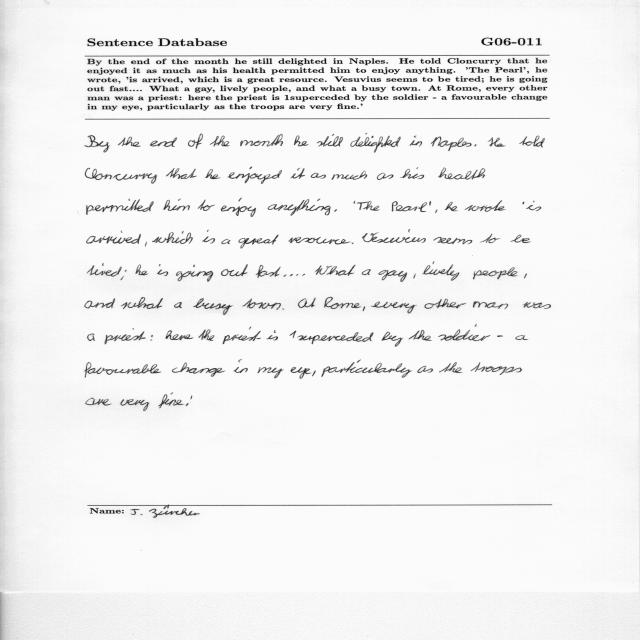 Sentence Database G06-011
By the end of the month he still delighted in Naples. He told Cloncurry that he
enjoyed it as much as his health permitted him to enjoy anything. 'The Pearl', he
wrote, 'is arrived, which is a great resource. Vesuvius seems to be tired; he is going
out fast.... What a gay, lively people, and what a busy town. At Rome, every other
man was a priest: here the priest is 1superceded by the soldier - a favourable change
in my eye, particularly as the troops are very fine.'
By the end of the month he still delighted in Naples. He told
Cloncurry that he enjoyed it as much as his health
permitted him to enjoy anything. 'The Pearl', he wrote 'is
arrived, which is a great resource. Vesuvius seems to be
tired; he is going out fast.... What a gay, lively people,
and what a busy town. At Rome, every other man was
a priest: here the priest is 1superceded by the soldier - a
favourable change in my eye, particularly as the troops
are very fine.'
Name: J. Zürcher